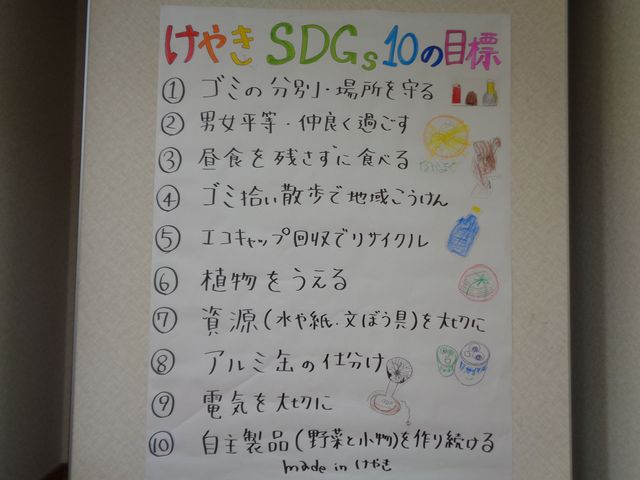 けやき SDGs 10の目標
① ゴミの分別・場所を守る
② 男女平等・仲良く過ごす
③ 昼食を残さずに食べる
④ ゴミ拾い散歩で地域こうけん
⑤ エコキャップ回収でリサイクル
⑥ 植物をうえる
⑦ 資源(水や紙・文ぼう具)を大切に
⑧ アルミ缶の仕分け
⑨ 電気を大切に
⑩ 自主製品(野菜と小物)を作り続ける
made in けやき